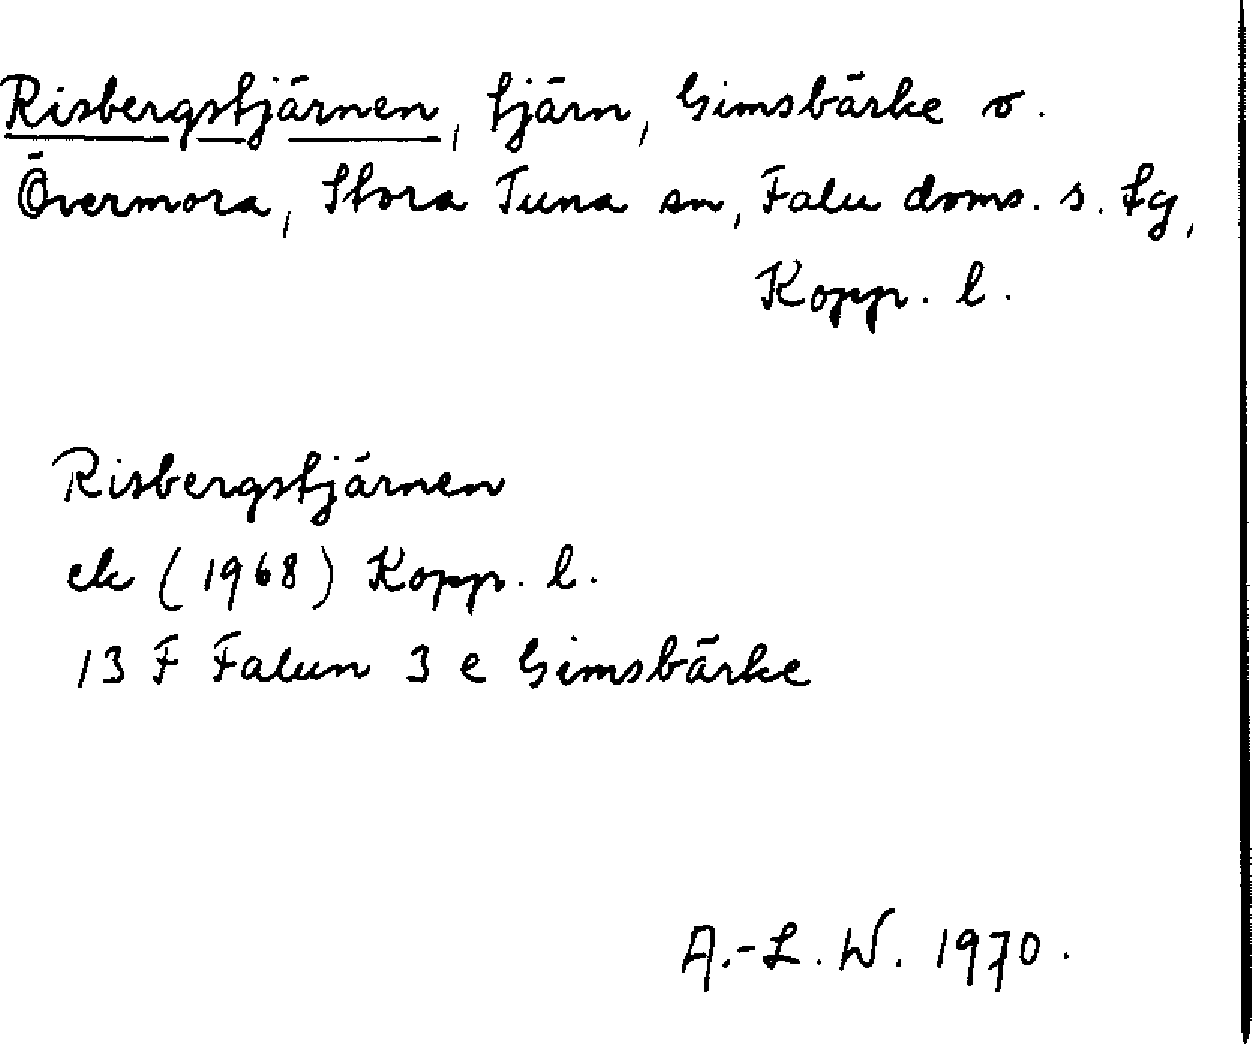 Risbergstjärnen, tjärn, Gimsbärke o.
Övermora, Stora Tuna sn, Falu doms. s. tg,
Kopp. l.
Risbergstjärnen
ek (1968) Kopp. l.
13 F Falun 3 e Gimsbärke
A.-L. W. 1970.